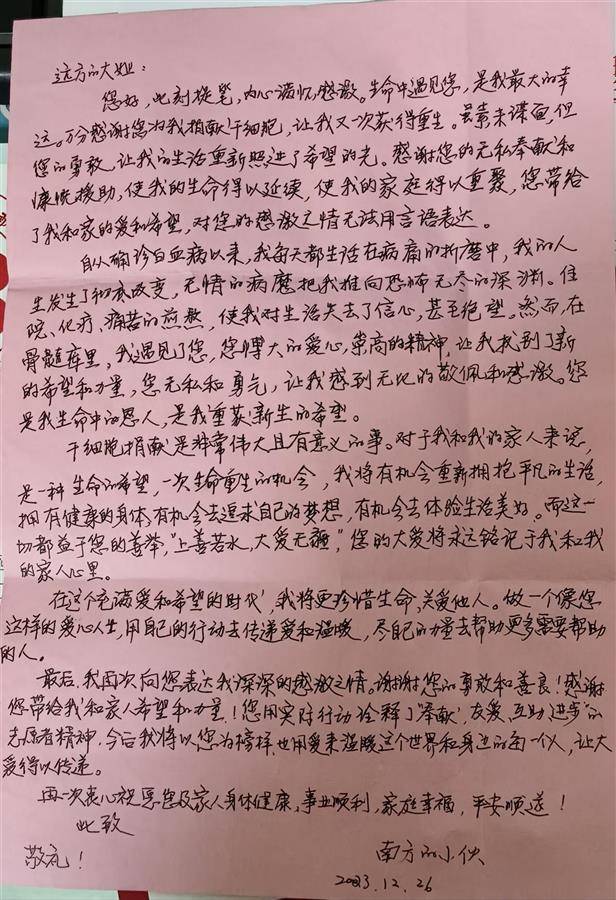 远方的大姐：
您好，此刻提笔，内心满怀感激。生命中遇见您，是我最大的幸
运。万分感谢您为我捐献干细胞，让我又一次获得重生。虽素未谋面，但
您的勇敢，让我的生活重新照进了希望的光。感谢您的无私奉献和
慷慨援助，使我的生命得以延续，使我的家庭得以重聚，您带给
了我和家的爱和希望，对您的感激之情无法用言语表达。
自从确诊白血病以来，我每天都生活在病痛的折磨中，我的人
生发生了彻底改变，无情的病魔把我推向恐怖无尽的深渊。住
院、化疗、痛苦的煎熬，使我对生活失去了信心，甚至绝望。然而，在
骨髓库里，我遇见了您，您博大的爱心，崇高的精神，让我找到了新
的希望和力量，您无私和勇气，让我感到无比的敬佩和感激。您
是我生命中的恩人，是我重获新生的希望。
干细胞捐献是非常伟大且有意义的事。对于我和我的家人来说，
是一种生命的希望，一次生命重生的机会，我将有机会重新拥抱平凡的生活，
拥有健康的身体，有机会去追求自己的梦想，有机会去体验生活美好。而这一
切都益于您的善举，“上善若水，大爱无疆”，您的大爱将永远铭记于我和我
的家人心里。
在这个充满爱和希望的时代，我将更珍惜生命，关爱他人。做一个像您
这样的爱心人生，用自己的行动去传递爱和温暖，尽自己的力量去帮助更多需要帮助
的人。
最后，我再次向您表达我深深的感激之情。谢谢您的勇敢和善良！感谢
您带给我和家人希望和力量！您用实际行动诠释了“奉献、友爱、互助、进步”的
志愿者精神，今后我将以您为榜样，也用爱来温暖这个世界和身边的每一个人，让大
爱得以传递。
再一次衷心祝愿您及家人身体健康，事业顺利，家庭幸福，平安顺遂！
此致
敬礼！
南方的小伙
2023.12.26